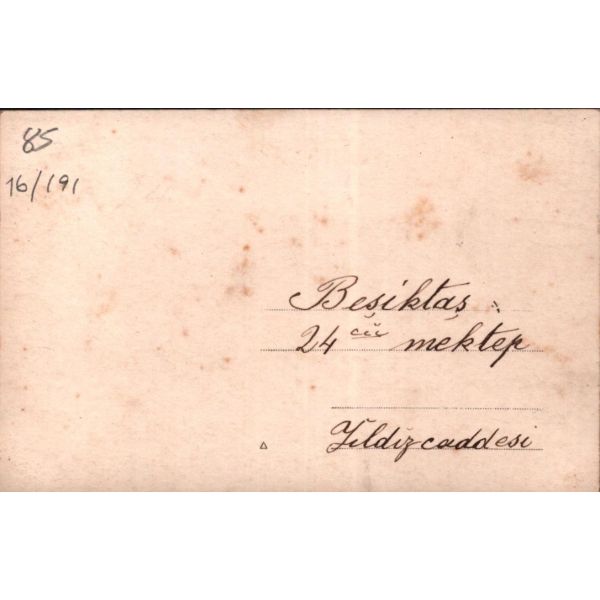 85
16/191
Beşiktaş :
24 cü mektep
Yıldızcaddesi